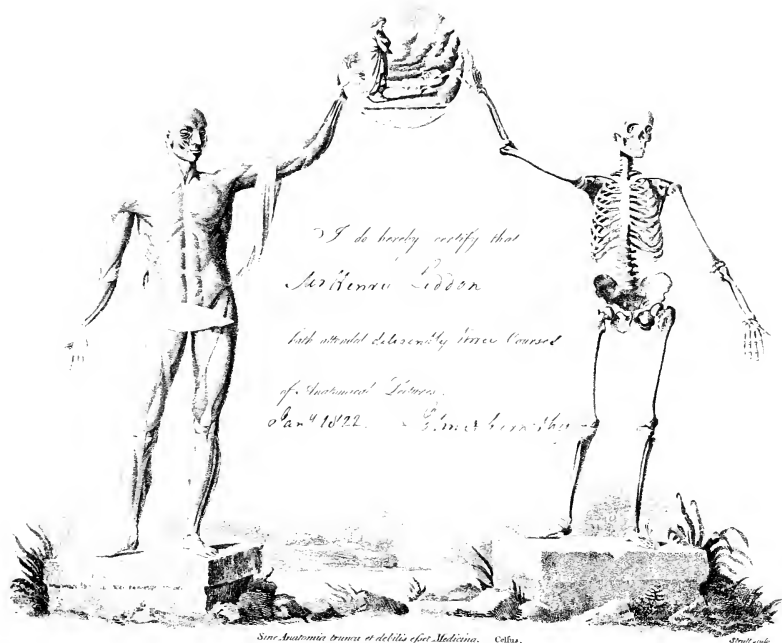 I do hereby certify that
Mr Henry Liddon
hath attended diligently three Courses
of Anatomical Lectures.
Jany 1822. Abernethy
Sine Anatomia trunca et debilis esset Medicina. Celsus.
Strutt sculp